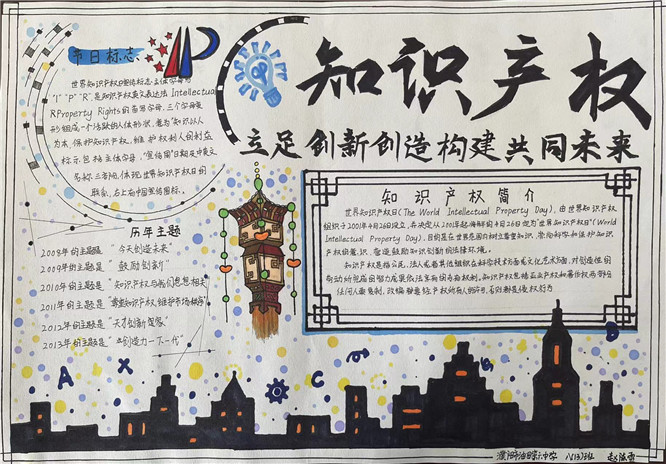 节日标志
世界知识产权日宣传标志主体字母为
"I""P""R",是知识产权英文表达法Intellectua
lRProperty Rights的首写字母,三个字母变
形组成一个活跃的人体形状,意为"知识以人
为本,保护知识产权,维护权利人的利益
标示男格主体字母,"宣传周"日期及中英文
名称三者构,体现世界知识产权日的
联系,右上角中国宣传图标。
知识产权
立足创新创造构建共同未来
历年主题
2008年的主题是 "今天创造未来"
2009年的主题是 "鼓励创新"
2010年的主题是 "知识产权与我们思想相关"
2011年的主题是 "尊重知识产权,维护市场秩序"
2012年的主题是 "天才创新家"
2013年的主题是 "创造力一下一代"
知识产权简介
世界知识产权日(The World Intellectual Property Day),由世界知识产权
组织于2001年4月26日设立,并决定从2001年起将每年的4月26日定为"世界知识产权日"(World
Intellectual Property Day),目的是在世界范围内树立尊重知识,崇尚科学和保护知识
产权的意识,营造鼓励知识创新的法律环境。
知识产权是指公民、法人或者其他组织在科学技术方面或文化艺术方面,对创造性的
劳动所完成的智力成果依法享有的专有权利。知识产权是指工业产权和著作权两部分
任何人要复制,改编
A X C D
濮阳市油田第六中学 八(3)班